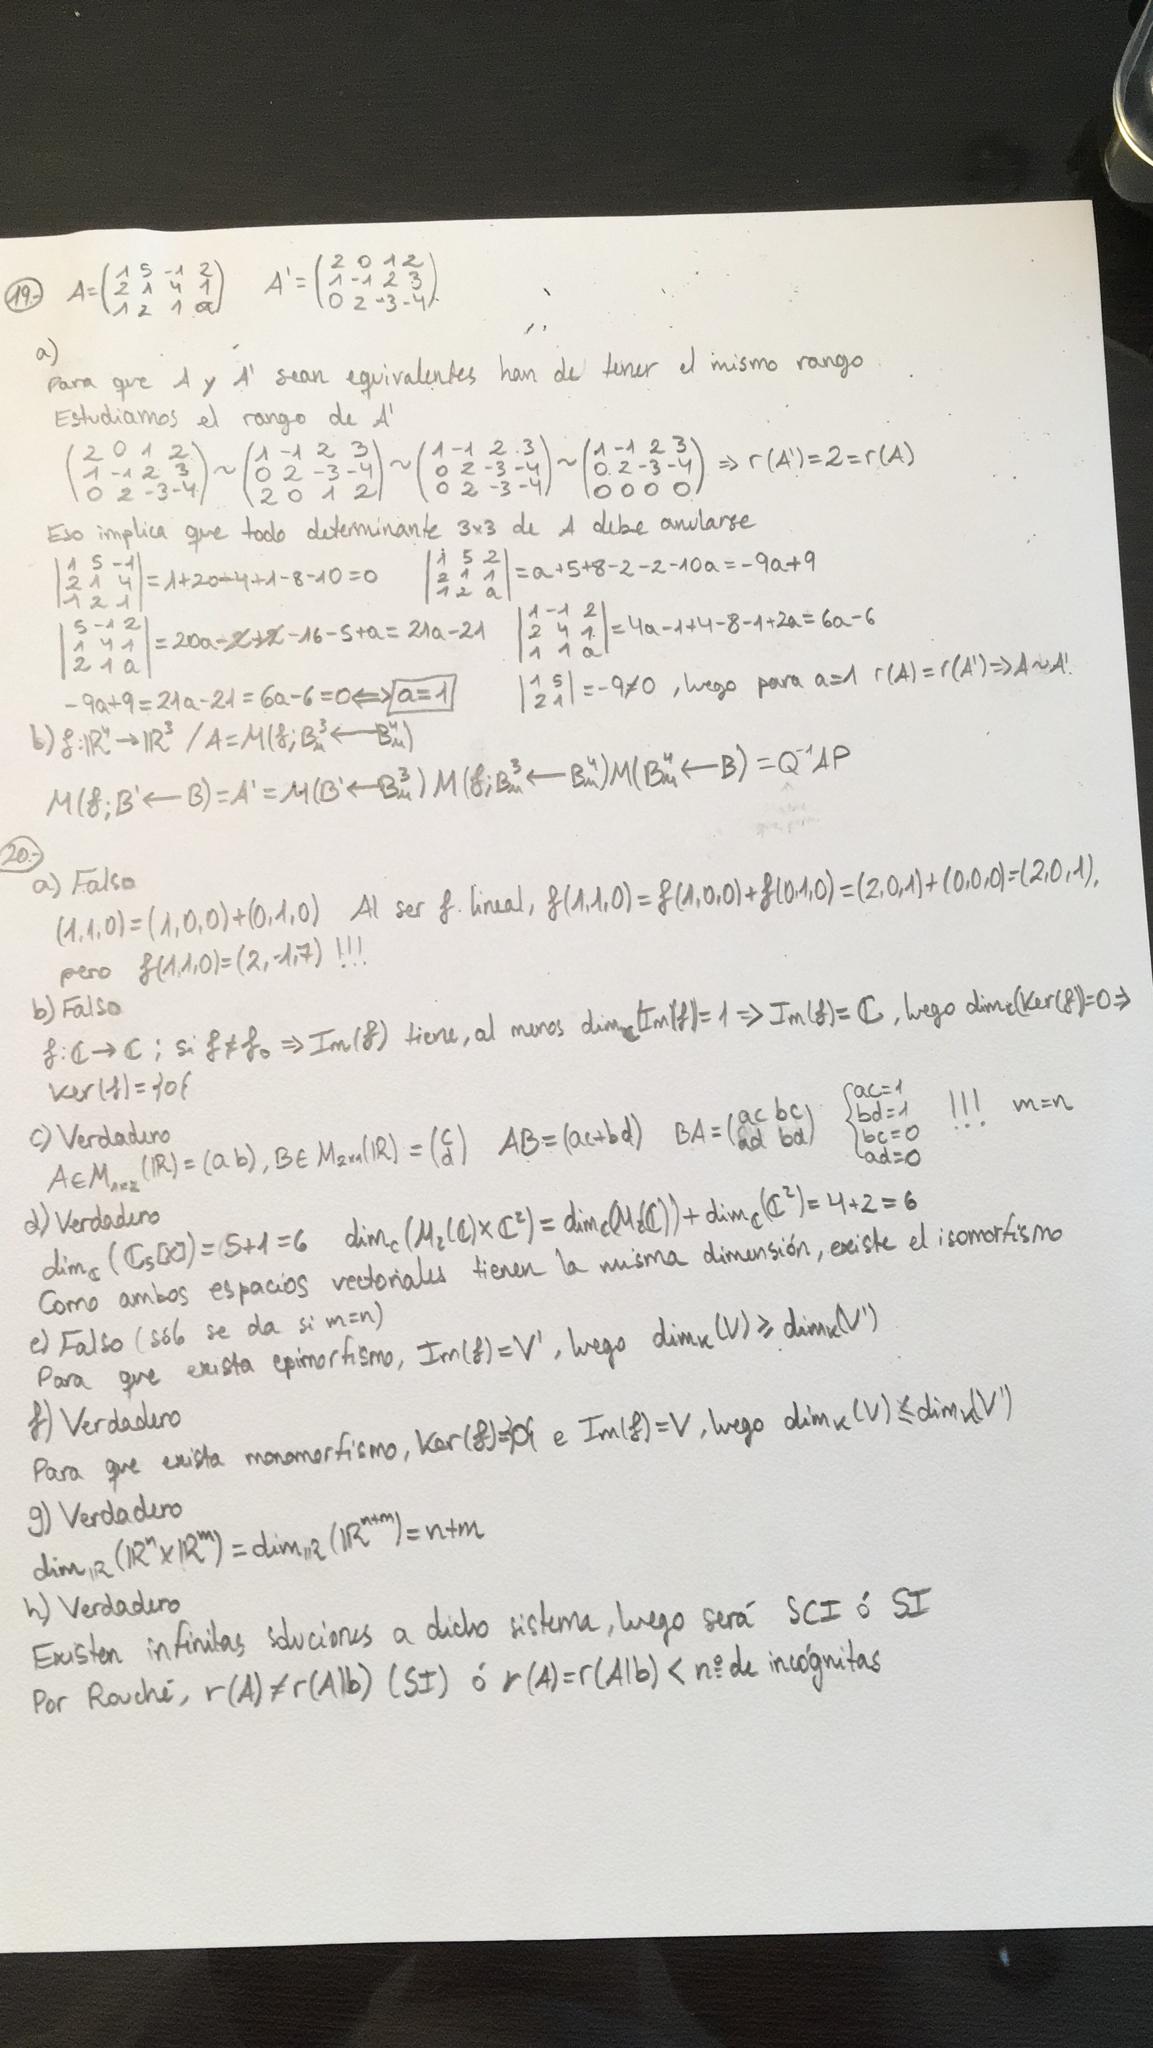 19.- A=(1 5 -1 2 / 2 1 4 1 / 1 2 1 a) A'=(2 0 1 2 / 1 -1 2 3 / 0 2 -3 -4)
a)
Para que A y A' sean equivalentes han de tener el mismo rango
Estudiamos el rango de A'
(2 0 1 2 / 1 -1 2 3 / 0 2 -3 -4) ~ (1 -1 2 3 / 0 2 -3 -4 / 2 0 1 2) ~ (1 -1 2 3 / 0 2 -3 -4 / 0 2 -3 -4) ~ (1 -1 2 3 / 0 2 -3 -4 / 0 0 0 0) ⇒ r(A')=2=r(A)
Eso implica que todo determinante 3x3 de A debe anularse
|1 5 -1 / 2 1 4 / 1 2 1|=1+20-4+1-8-10=0 |1 5 2 / 2 1 1 / 1 2 a|=a+5+8-2-2-10a=-9a+9
|5 -1 2 / 1 4 1 / 2 1 a|=20a-2+2-16-5+a=21a-21 |1 -1 2 / 2 4 1 / 1 1 a|=4a-1+4-8-1+2a=6a-6
-9a+9=21a-21=6a-6=0⟺a=1 |1 5 / 2 1|=-9≠0, luego para a=1 r(A)=r(A')⇒A~A'
b) f:ℝ⁴→ℝ³ / A=M(f;Bₘ³←Bₘ⁴)
M(f;B'←B)=A'=M(B'←Bₘ³)M(f;Bₘ³←Bₘ⁴)M(Bₘ⁴←B)=Q⁻¹AP
20.-
a) Falso
(1,1,0)=(1,0,0)+(0,1,0) Al ser f lineal, f(1,1,0)=f(1,0,0)+f(0,1,0)=(2,0,1)+(0,0,0)=(2,0,1),
pero f(1,1,0)=(2,-1,7) !!!
b) Falso
f:ℂ→ℂ; si f≠f₀ ⇒ Im(f) tiene, al menos dim_ℂ(Im(f))=1 ⇒ Im(f)=ℂ, luego dim_ℂ(Ker(f))=0⇒
Ker(f)={0}
c) Verdadero
A∈M₁ₓ₂(ℝ)=(a b), B∈M₂ₓ₁(ℝ)=(c / d) AB=(ac+bd) BA=(ac bc / ad bd) {ac=1 / bd=1 / bc=0 / ad=0 !!! m=n
d) Verdadero
dim_ℂ(ℂ₅[x])=5+1=6 dim_ℂ(M₂(ℂ)×ℂ²)=dim_ℂ(M₂(ℂ))+dim_ℂ(ℂ²)=4+2=6
Como ambos espacios vectoriales tienen la misma dimensión, existe el isomorfismo
e) Falso (sólo se da si m=n)
Para que exista epimorfismo, Im(f)=V', luego dim_K(V)≥dim_K(V')
f) Verdadero
Para que exista monomorfismo, Ker(f)={0} e Im(f)=V, luego dim_K(V)≤dim_K(V')
g) Verdadero
dim_ℝ(ℝⁿ×ℝᵐ)=dim_ℝ(ℝⁿ⁺ᵐ)=n+m
h) Verdadero
Existen infinitas soluciones a dicho sistema, luego será SCI ó SI
Por Rouché, r(A)≠r(A|b) (SI) ó r(A)=r(A|b)< nº de incógnitas